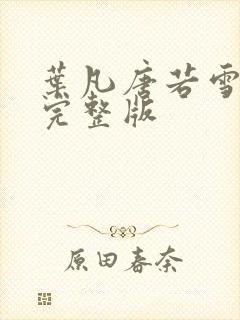 葉凡唐若雪
完整版
原田春奈